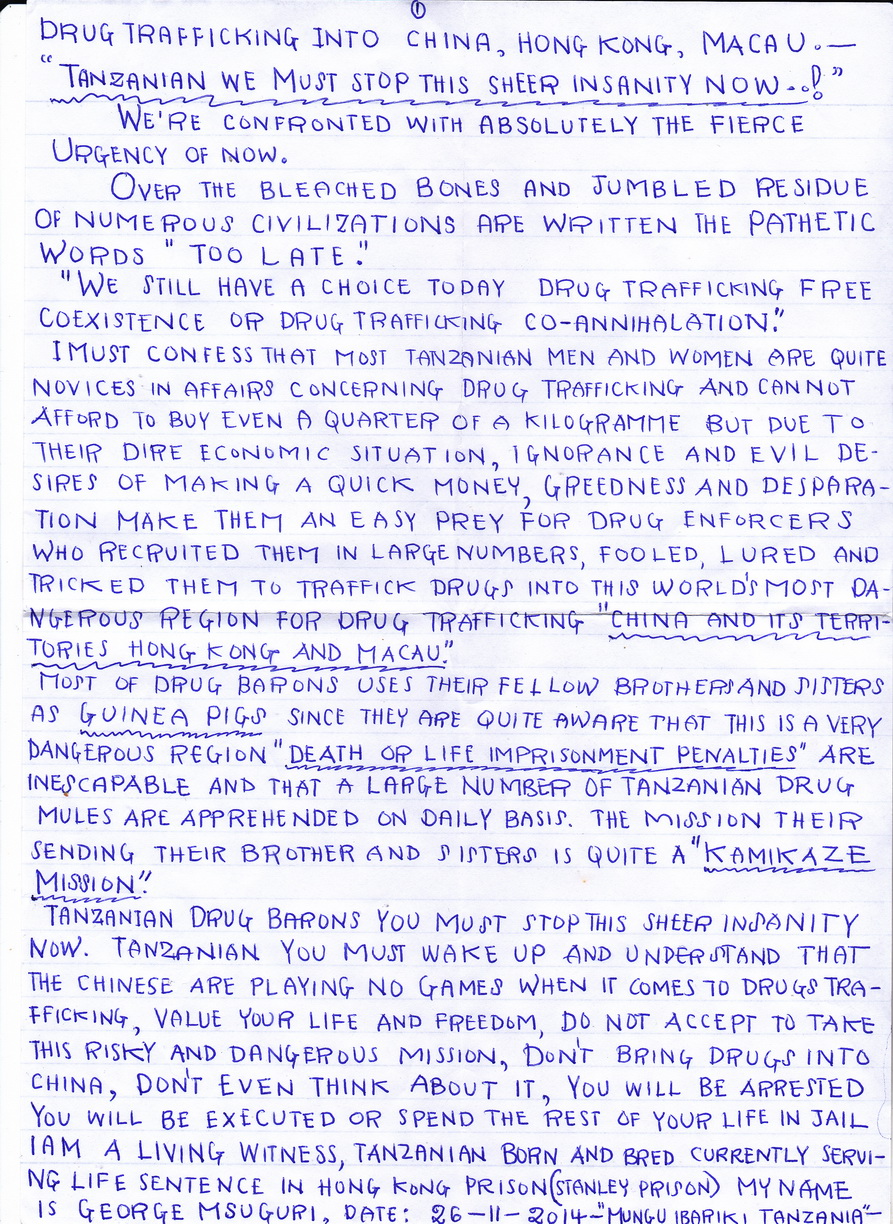 ①
DRUG TRAFFICKING INTO CHINA, HONG KONG, MACAU.—
"TANZANIAN WE MUST STOP THIS SHEER INSANITY NOW..!"
WE'RE CONFRONTED WITH ABSOLUTELY THE FIERCE
URGENCY OF NOW.
OVER THE BLEACHED BONES AND JUMBLED RESIDUE
OF NUMEROUS CIVILIZATIONS ARE WRITTEN THE PATHETIC
WORDS "TOO LATE."
"WE STILL HAVE A CHOICE TODAY DRUG TRAFFICKING FREE
COEXISTENCE OR DRUG TRAFFICKING CO-ANNIHALATION."
I MUST CONFESS THAT MOST TANZANIAN MEN AND WOMEN ARE QUITE
NOVICES IN AFFAIRS CONCERNING DRUG TRAFFICKING AND CANNOT
AFFORD TO BUY EVEN A QUARTER OF A KILOGRAMME BUT DUE TO
THEIR DIRE ECONOMIC SITUATION, IGNORANCE AND EVIL DE-
SIRES OF MAKING A QUICK MONEY, GREEDNESS AND DESPARA-
TION MAKE THEM AN EASY PREY FOR DRUG ENFORCERS
WHO RECRUITED THEM IN LARGE NUMBERS, FOOLED, LURED AND
TRICKED THEM TO TRAFFICK DRUGS INTO THIS WORLD'S MOST DA-
NGEROUS REGION FOR DRUG TRAFFICKING "CHINA AND ITS TERRI-
TORIES HONG KONG AND MACAU."
MOST OF DRUG BARONS USES THEIR FELLOW BROTHERS AND SISTERS
AS GUINEA PIGS SINCE THEY ARE QUITE AWARE THAT THIS IS A VERY
DANGEROUS REGION "DEATH OR LIFE IMPRISONMENT PENALTIES" ARE
INESCAPABLE AND THAT A LARGE NUMBER OF TANZANIAN DRUG
MULES ARE APPREHENDED ON DAILY BASIS. THE MISSION THEIR
SENDING THEIR BROTHER AND SISTERS IS QUITE A "KAMIKAZE
MISSION."
TANZANIAN DRUG BARONS YOU MUST STOP THIS SHEER INSANITY
NOW. TANZANIAN YOU MUST WAKE UP AND UNDERSTAND THAT
THE CHINESE ARE PLAYING NO GAMES WHEN IT COMES TO DRUGS TRA-
FFICKING, VALUE YOUR LIFE AND FREEDOM, DO NOT ACCEPT TO TAKE
THIS RISKY AND DANGEROUS MISSION, DON'T BRING DRUGS INTO
CHINA, DON'T EVEN THINK ABOUT IT, YOU WILL BE ARRESTED
YOU WILL BE EXECUTED OR SPEND THE REST OF YOUR LIFE IN JAIL
I AM A LIVING WITNESS, TANZANIAN BORN AND BRED CURRENTLY SERVI-
NG LIFE SENTENCE IN HONG KONG PRISON (STANLEY PRISON) MY NAME
IS GEORGE MSUGURI, DATE: 26-11-2014-"MUNGU IBARIKI TANZANIA"-